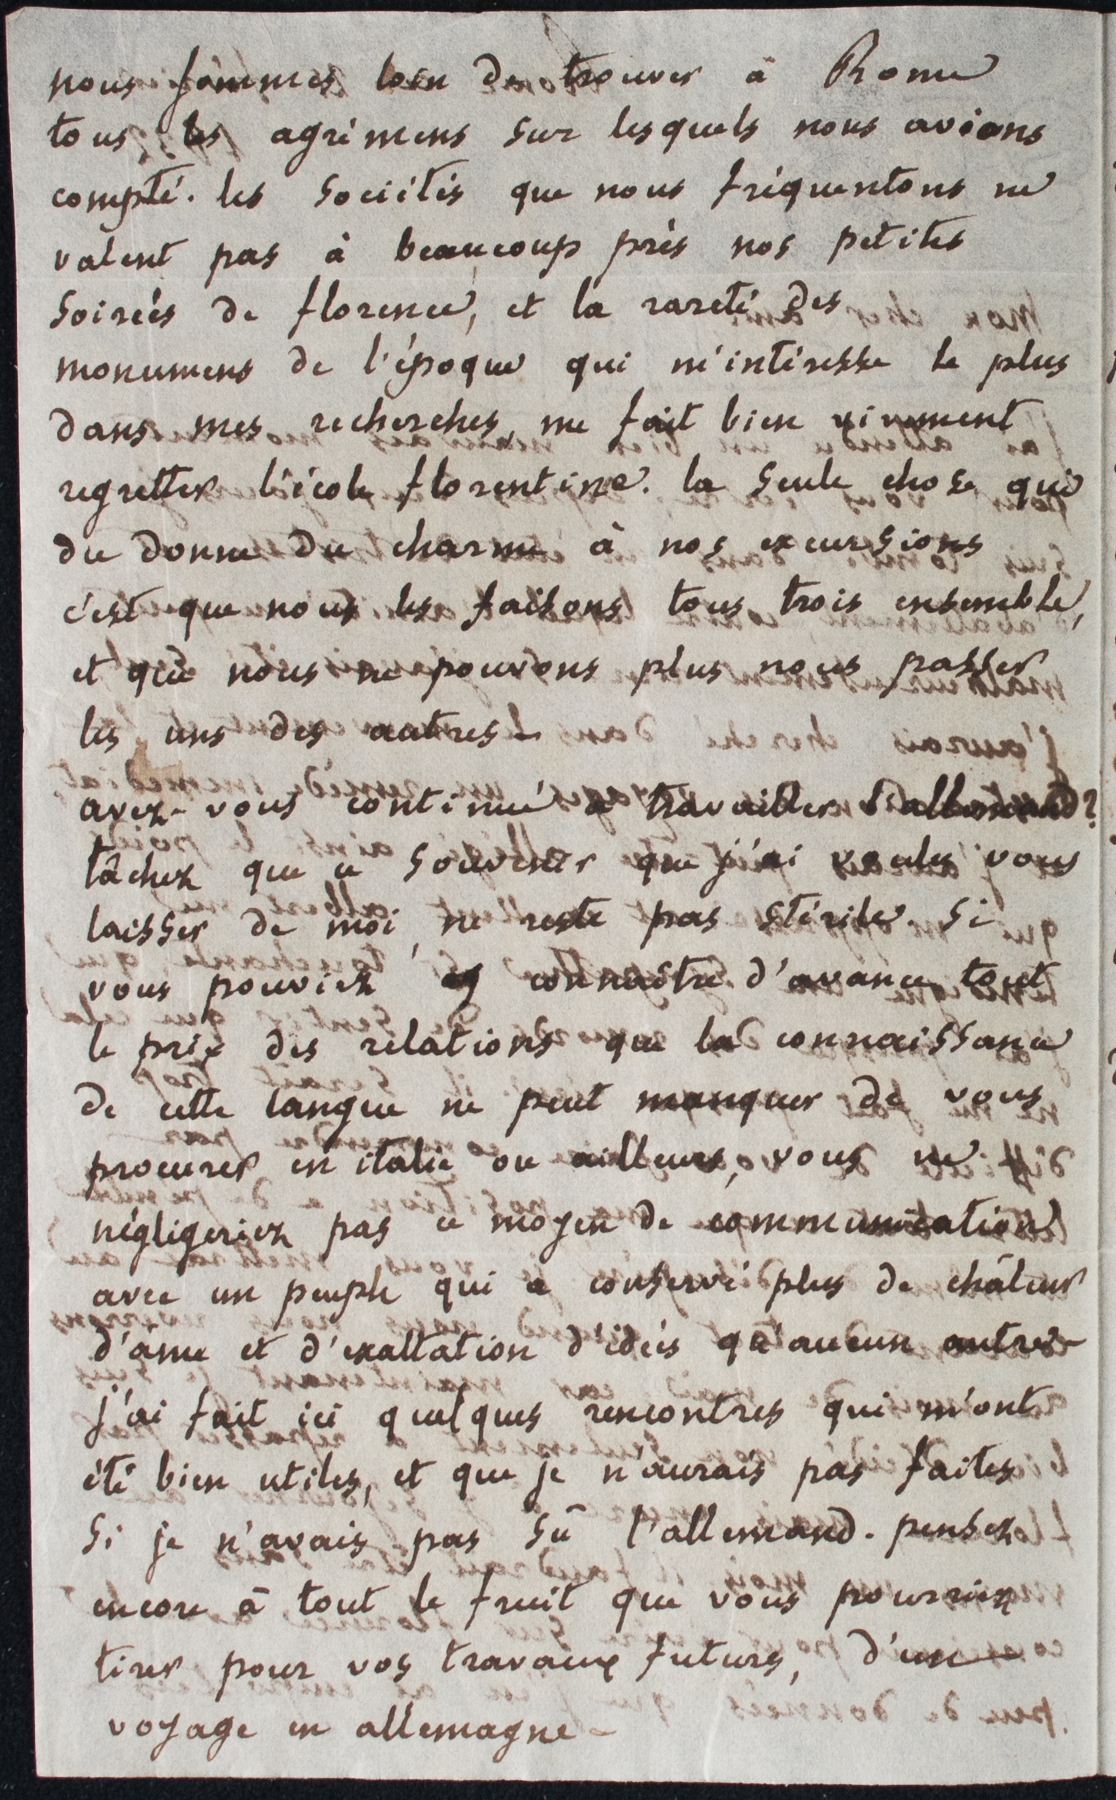 nous sommes loin de trouver à Rome
tous les agrémens sur lesquels nous avions
compté. les sociétés que nous fréquentons ne
valent pas à beaucoup près nos petites
soirées de florence, et la rareté des
monumens de l'époque qui m'intéresse le plus
dans mes recherches, me fait bien vivement
regretter l'école florentine. la seule chose qui
du donne du charme à nos excursions
c'est que nous les faisons tous trois ensemble,
et que nous ne pouvons plus nous passer
les uns des autres -
avez-vous continué à travailler l'allemand?
tâchez que ce souvenir que j'ai voulu vous
laisser de moi, ne reste pas stérile. si
vous pouviez connaître d'avance tout
le prix des relations que la connaissance
de cette langue ne peut manquer de vous
procurer en italie ou ailleurs, vous ne
négligeriez pas ce moyen de communication
avec un peuple qui a conservé plus de châleur
d'âme et d'exaltation d'idées qu'aucun autre -
j'ai fait ici quelques rencontres qui m'ont
été bien utiles, et que je n'aurais pas faites
si je n'avais pas sû l'allemand. pensez
encore à tout le fruit que vous pourriez
tirer pour vos travaux futurs, d'un
voyage en allemagne -